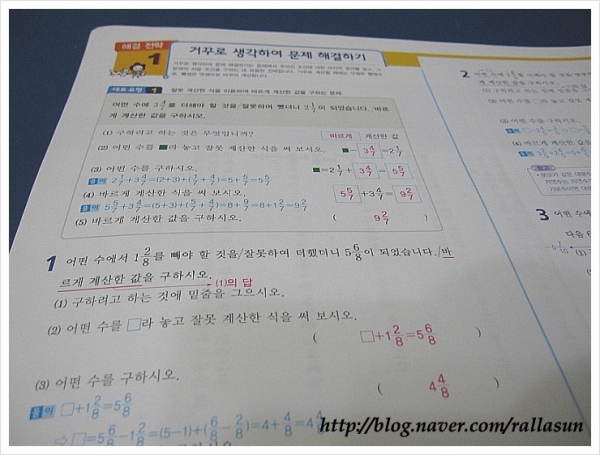 해결 전략
1
거꾸로 생각하여 문제 해결하기
대표 유형 1 잘못 계산한 식을 이용하여 바르게 계산한 값을 구하는 문제
어떤 수에 3 4/7를 더해야 할 것을/잘못하여 뺐더니 2 1/7이 되었습니다./바르
게 계산한 값을 구하시오.
(1) 구하려고 하는 것은 무엇입니까? 바르게 계산한 값
(2) 어떤 수를 ■라 놓고 잘못 계산한 식을 써 보시오. ■- 3 4/7 =2 1/7
(3) 어떤 수를 구하시오. ■=2 1/7+ 3 4/7 = 5 5/7
풀이 2 1/7+3 4/7=(2+3)+(1/7+4/7)=5+5/7=5 5/7
(4) 바르게 계산한 식을 써 보시오. 5 5/7 +3 4/7= 9 2/7
풀이 5 5/7+3 4/7=(5+3)+(5/7+4/7)=8+9/7=8+1 2/7=9 2/7
(5) 바르게 계산한 값을 구하시오. ( 9 2/7 )
1 어떤 수에서 1 2/8를 빼야 할 것을/잘못하여 더했더니 5 6/8이 되었습니다./바
르게 계산한 값을 구하시오.
→(1)의 답
(1) 구하려고 하는 것에 밑줄을 그으시오.
(2) 어떤 수를 □라 놓고 잘못 계산한 식을 써 보시오.
( □+1 2/8=5 6/8 )
(3) 어떤 수를 구하시오.
( 4 4/8 )
풀이 □+1 2/8=5 6/8
⇨ □=5 6/8-1 2/8=(5-1)+(6/8-2/8)=4+4/8=4 4/8
2
3 어떤 수에
다음
http://blog.naver.com/rallasun